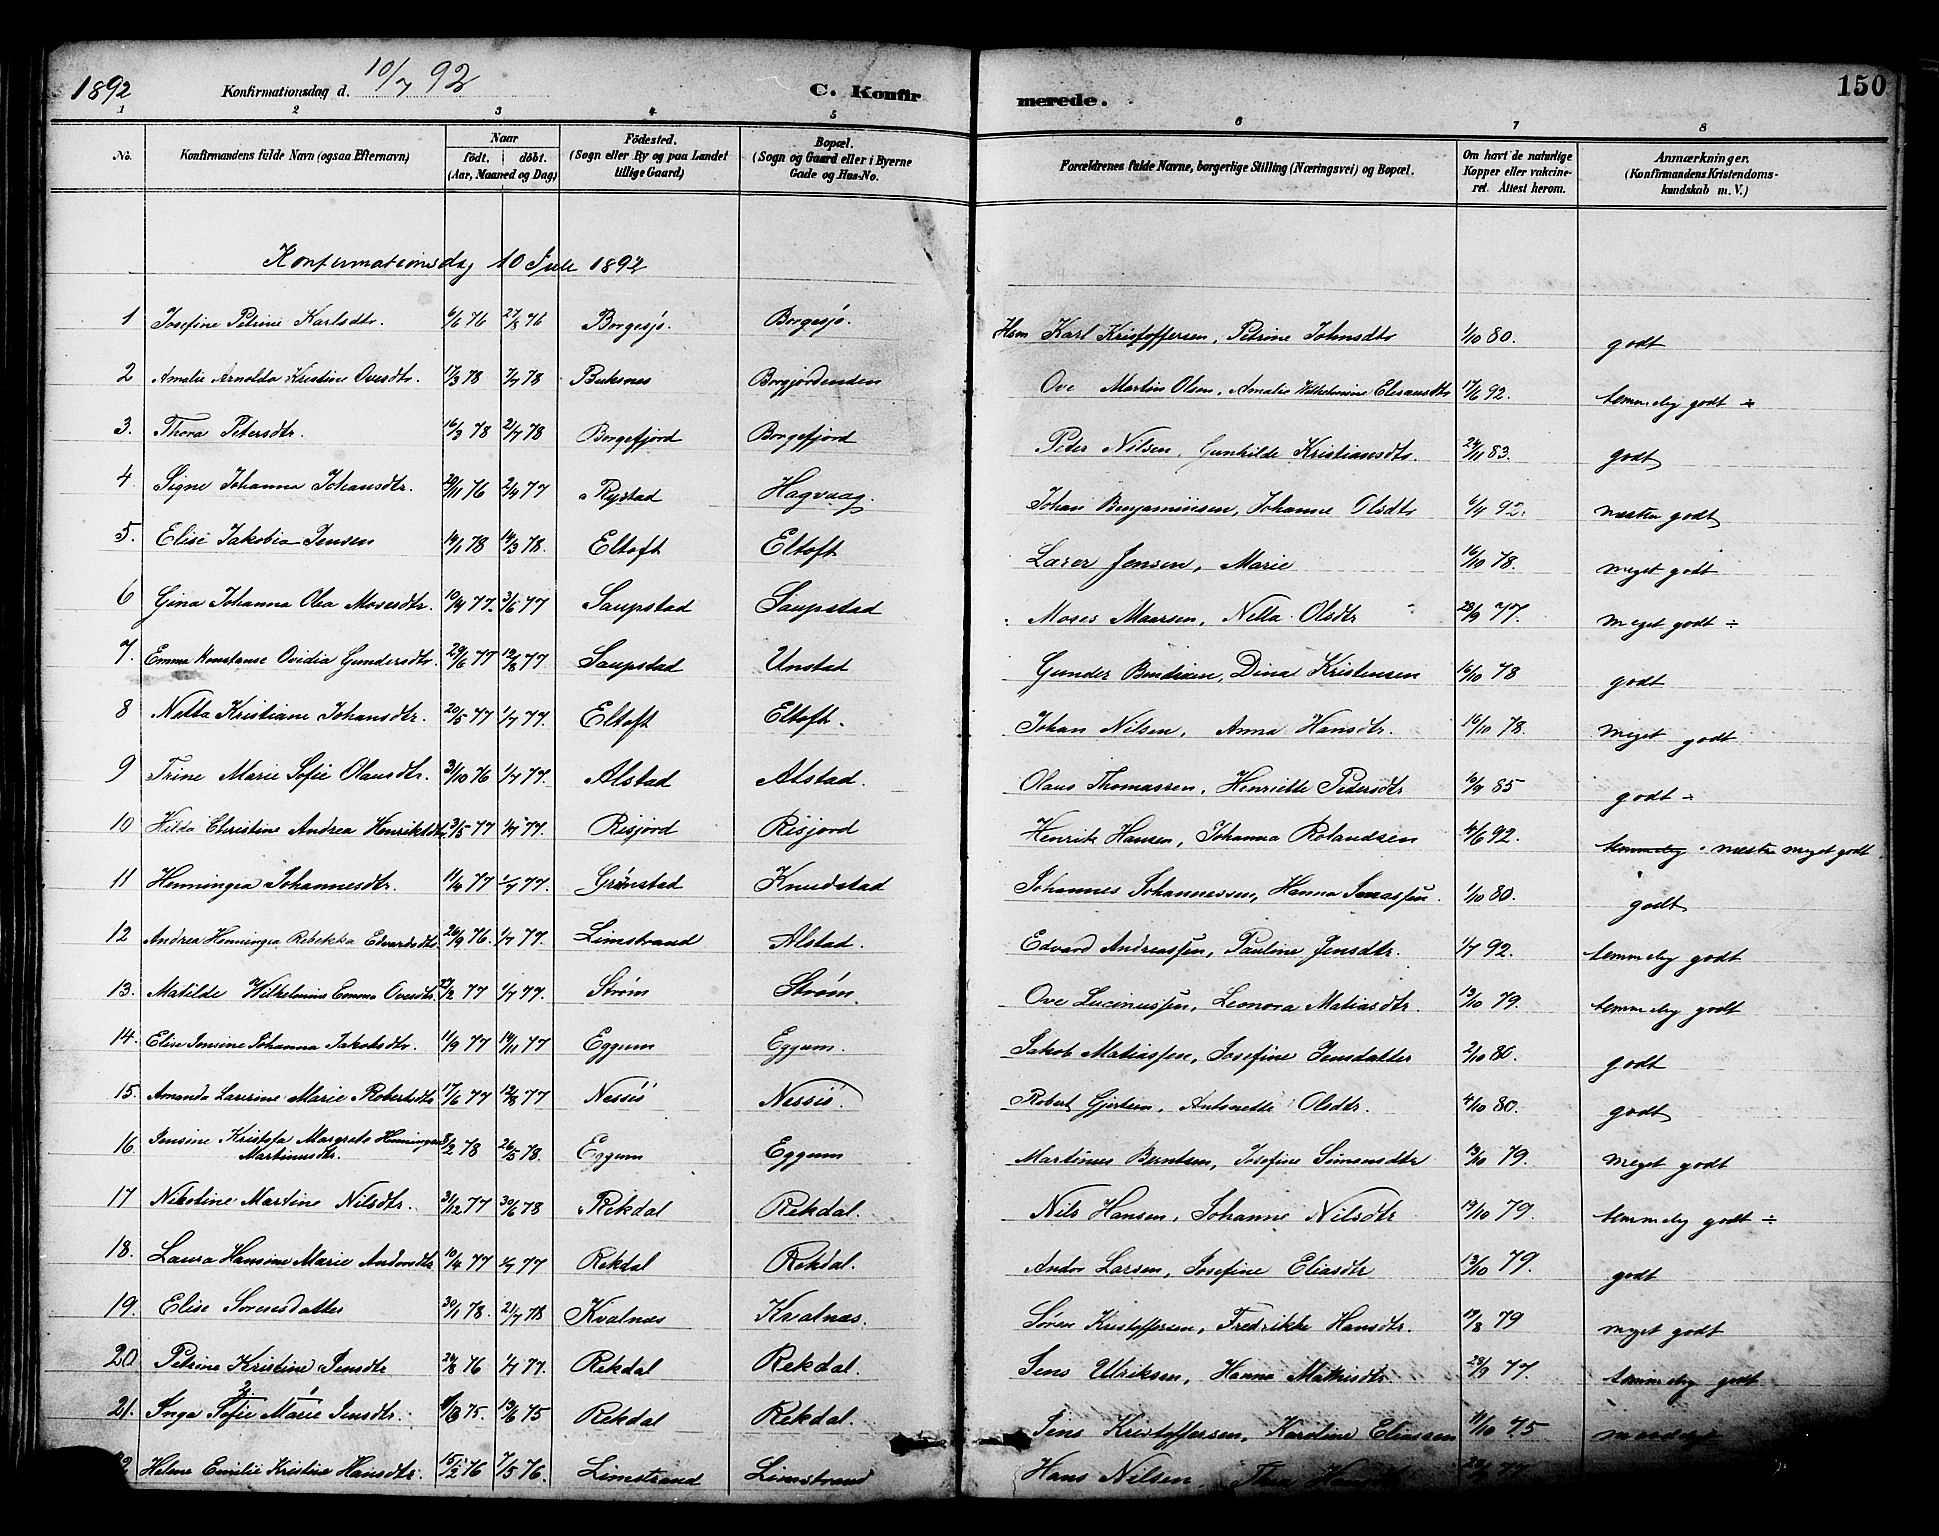 1892 Konfirmationsdag d. 10/7 92 C. Konfirmerede. 150
1 2 3 4 5 6 7 8
No. Konfirmandens fulde Navn (ogsaa Efternavn) Naar födt. döbt. (Aar, Maaned og Dag) Födested. (Sogn eller By og paa Landet tillige Gaard) Bopæl. (Sogn og Gaard eller i Byerne Gade og Hus-No. Forældrenes fulde Navne, borgerlige Stilling (Næringsvei) og Bopæl. Om havt de naturlige Kopper eller vakcineret. Attest herom. Anmærkninger. (Konfirmandens Kristendomskundskab m. V.)
Konfirmationsdag 10 Juli 1892
1 Josefine Petrine Karlsdtr. 6/6 76 27/8 76 Borgesjø. Borgesjø. Hsm Karl Kristoffersen, Petrine Johnsdtr 1/10 80. godt
2 Amalie Arnolda Kristine Ovesdtr. 17/3 78 7/7 78 Buksnes Borgjordenden Ove Martin Olsen, Amalie Wilhelmine 17/6 92. temmelig godt ÷
3. Thora Petersdtr. 16/3 78 21/7 78 Borgefjord Borgefjord Peder Nilsen, Gunhilde Kristiansdtr. 24/11 83. godt
4 Signe Johanna Johansdtr. 29/11 76 2/4 77 Rystad Hagvaag. Johan Benjaminsen, Johanne Olsdtr 6/4 92. næsten godt
5. Elise Jakobia Jensen 14/1 78 14/3 78. Eltoft Eltoft Lærer Jensen, Marie 16/10 78. meget godt
6 Gina Johanna Olea Mosesdtr. 10/4 77. 3/6 77 Saupstad Saupstad Moses Maarsen, Netta Olsdtr 23/9 77. meget godt ÷
7. Emma Konstanse Ovidia Gundersdtr. 29/6 77 19/8 77. Saupstad Unstad Gunder Bendixen, Dina Kristensen 16/10 78 godt
8 Netta Kristiane Johansdtr. 20/5 77 1/7 77. Eltoft Eltoft. Johan Nilsen, Anna Hansdtr. 16/10 78. meget godt
9 Trine Marie Sofie Olausdtr. 31/10 76 1/7 77. Alstad Alstad. Olaus Thomassen, Henriette Pedersdtr 10/9 85 godt ÷
10 Hilda Christine Andrea Henriksdtr. 31/5 77 1/7 77. Risjord Risjord Henrik Hansen, Johanna Rolandsen 4/6 92. temmelig næsten meget godt
11 Henningea Johannesdtr. 11/4 77 1/7 77. Grønstad Knudstad Johannes Johannessen, Hanna 1/10 80. godt
12 Andrea Henningea Rebekka Edvardsdtr. 26/9 76. 1/7 77. Limstrand Alstad. Edvard Andreassen, Pauline Jensdtr. 1/7 92. temmelig godt
13. Matilde Wilhelmine Emma Ovesdtr. 22/2 77 1/7 77. Strøm Strøm. Ove Lucinussen, Leonora Matiasdtr. 13/10 79. temmelig godt
14. Elise Jensine Johanna Jakobsdtr. 11/9 77 14/11 77 Eggum Eggum. Jakob Matiassen, Josefine Jensdatter 2/10 80. godt
15. Amanda Laverine Marie Robertsdtr. 17/6 77 12/8 77 Nessió Nessió. Robert Gjertsen, Antonette Olsdtr. 4/10 80. godt
16. Jensine Kristofa Margrete Henningea 8/2 78 26/5 78. Eggum Eggum Martinus Berntsen, Josefine Simonsdtr 13/10 79. meget godt
Martinusdtr.
17 Nikoline Martine Nilsdtr. 31/12 77 30/6 78 Rekdal Rekdal. Nils Hansen, Johanne Nilsdtr 13/10 79. temmelig godt ÷
18. Laura Hansine Marie Andorsdtr 10/4 77 1/7 77 Rekdal Rekdal. Andor Larsen, Josefine Eliasdtr 13/10 79. godt
19. Elise Sørensdatter 30/1 78. 21/7 78 Kvalnæs Kvalnæs. Søren Kristoffersen, Fredrikke Hansdtr. 13/8 79 meget godt
20. Petrine Kristine Jensdtr 24/8 76 1/7 77. Rekdal Rekdal. Jens Ulriksen, Hanna Mathisdtr. 23/9 77. temmelig godt
21. Inga Sofie Marie Jensdtr. 75. 13/6 75 Rekdal Rekdal. Jens Kristoffersen, Karoline Eliassen 11/10 75
Helene Emilie Kristine Hansdtr. 15/2 76 7/5 76. Limstrand Limstrand Hans Nilsen, 77